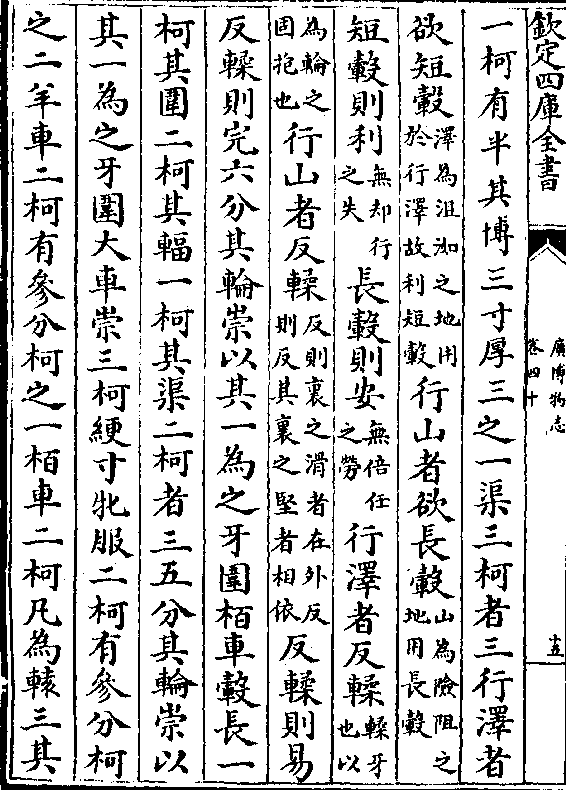 欽定四庫全書
廣博物志
卷四十
十五
一柯有半其博三寸厚三之一渠三柯者三行澤者
欲短轂澤為沮洳之地用於行澤故利短轂行山者欲長轂山為險阻之地用長轂
短轂則利無却行之失長轂則安無倍任之勞行澤者反輮輮牙也以
為輪之固抱也行山者反輮反則裏之滑者在外反則反其裏之堅者相依反輮則易
反輮則完六分其輪崇以其一為之牙圍栢車轂長一
柯其圍二柯其輻一柯其渠二柯者三五分其輪崇以
其一為之牙圍大車崇三柯綆寸牝服二柯有參分柯
之二羊車二柯有參分柯之一栢車二柯凡為轅三其